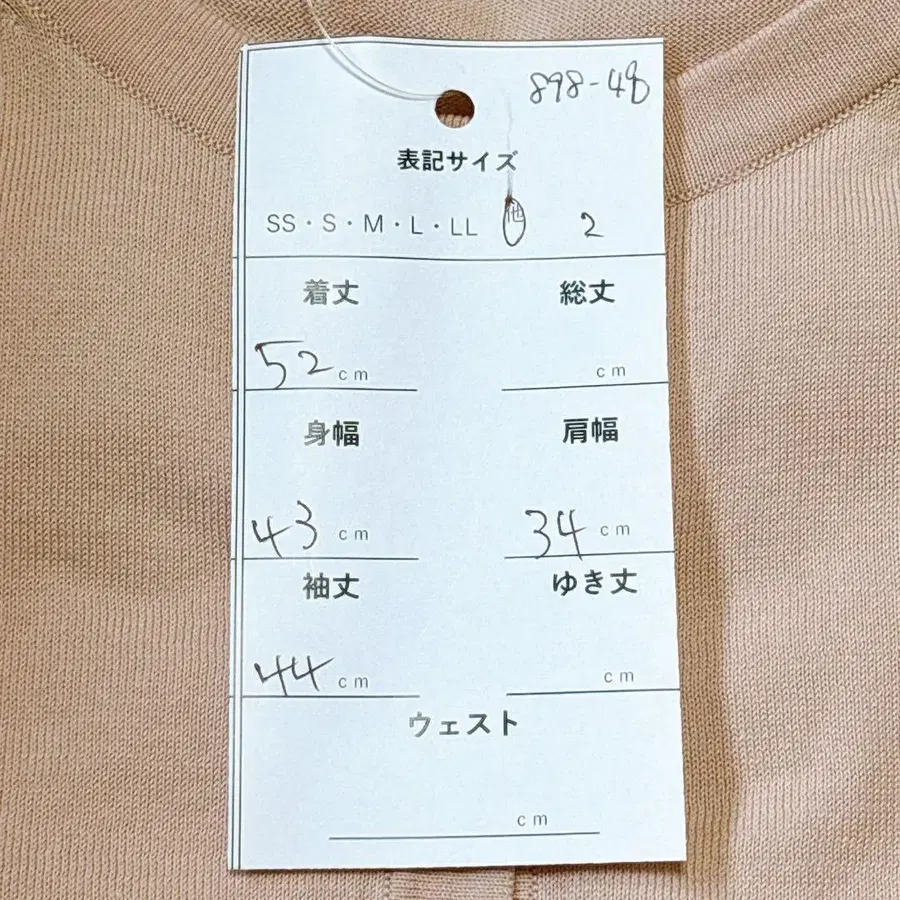 898-48
表記サイズ
SS・S・M・L・LL 他 2
着丈 総丈
52cm cm
身幅 肩幅
43cm 34cm
袖丈 ゆき丈
44cm cm
ウェスト
cm